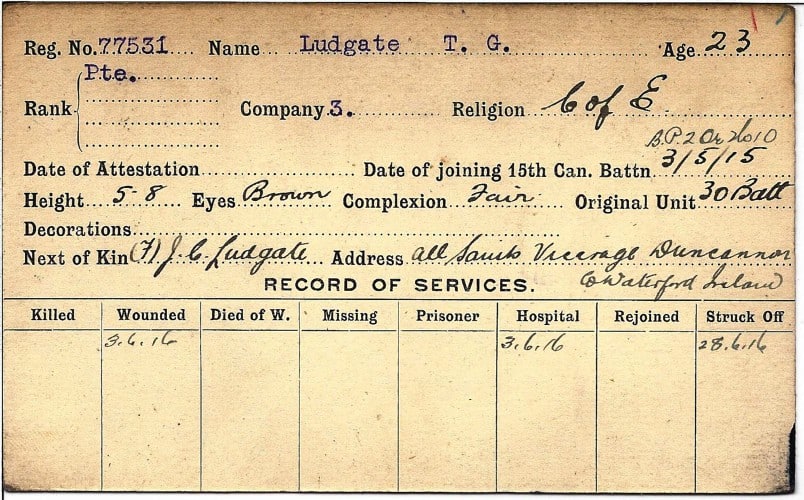 Reg. No. 77531 Name Ludgate T. G. Age 23
Pte.
Rank Company 3. Religion C of E
B.P. 2 Or 2610
Date of Attestation Date of joining 15th Can. Battn 3/5/15
Height 5-8 Eyes Brown Complexion Fair Original Unit 30 Batt
Decorations
Next of Kin (F) J. C. Ludgate Address All Saints Vicarage Duncannon
Co Waterford Ireland
RECORD OF SERVICES.
Killed Wounded Died of W. Missing Prisoner Hospital Rejoined Struck Off
3.6.16 3.6.16 28.6.16